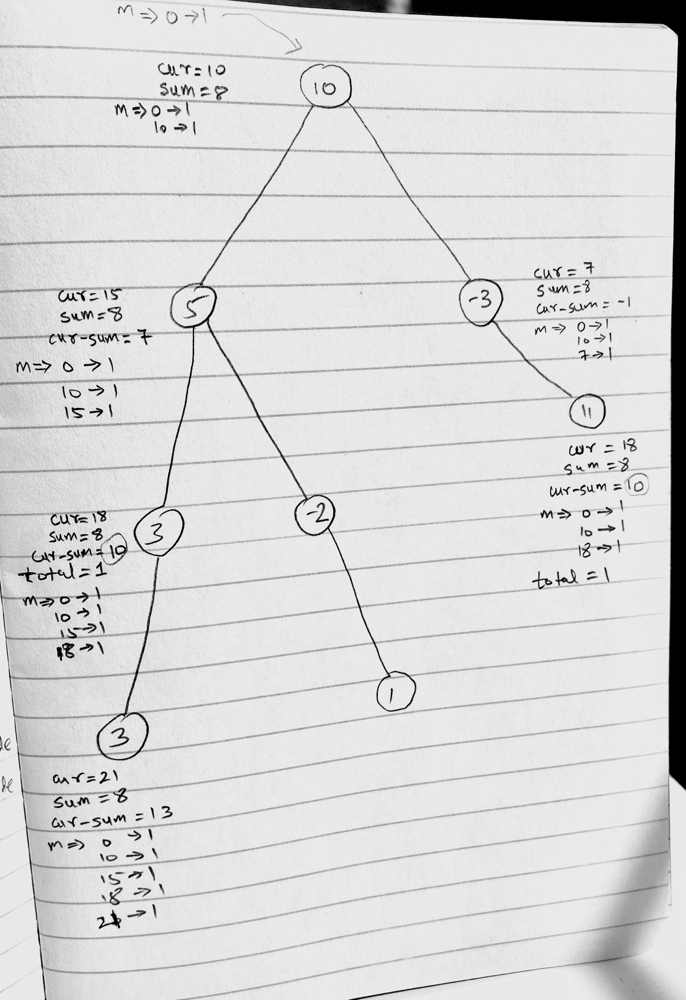 m => 0 → 1
10
cur = 10
sum = 8
m => 0 → 1
10 → 1
5
cur = 15
sum = 8
cur-sum = 7
m => 0 → 1
10 → 1
15 → 1
-3
cur = 7
sum = 8
cur-sum = -1
m => 0 → 1
10 → 1
7 → 1
11
cur = 18
sum = 8
cur-sum = 10
m => 0 → 1
10 → 1
18 → 1
total = 1
3
cur = 18
sum = 8
cur-sum = 10
total = 1
m => 0 → 1
10 → 1
15 → 1
18 → 1
-2
1
3
cur = 21
sum = 8
cur-sum = 13
m => 0 → 1
10 → 1
15 → 1
18 → 1
21 → 1